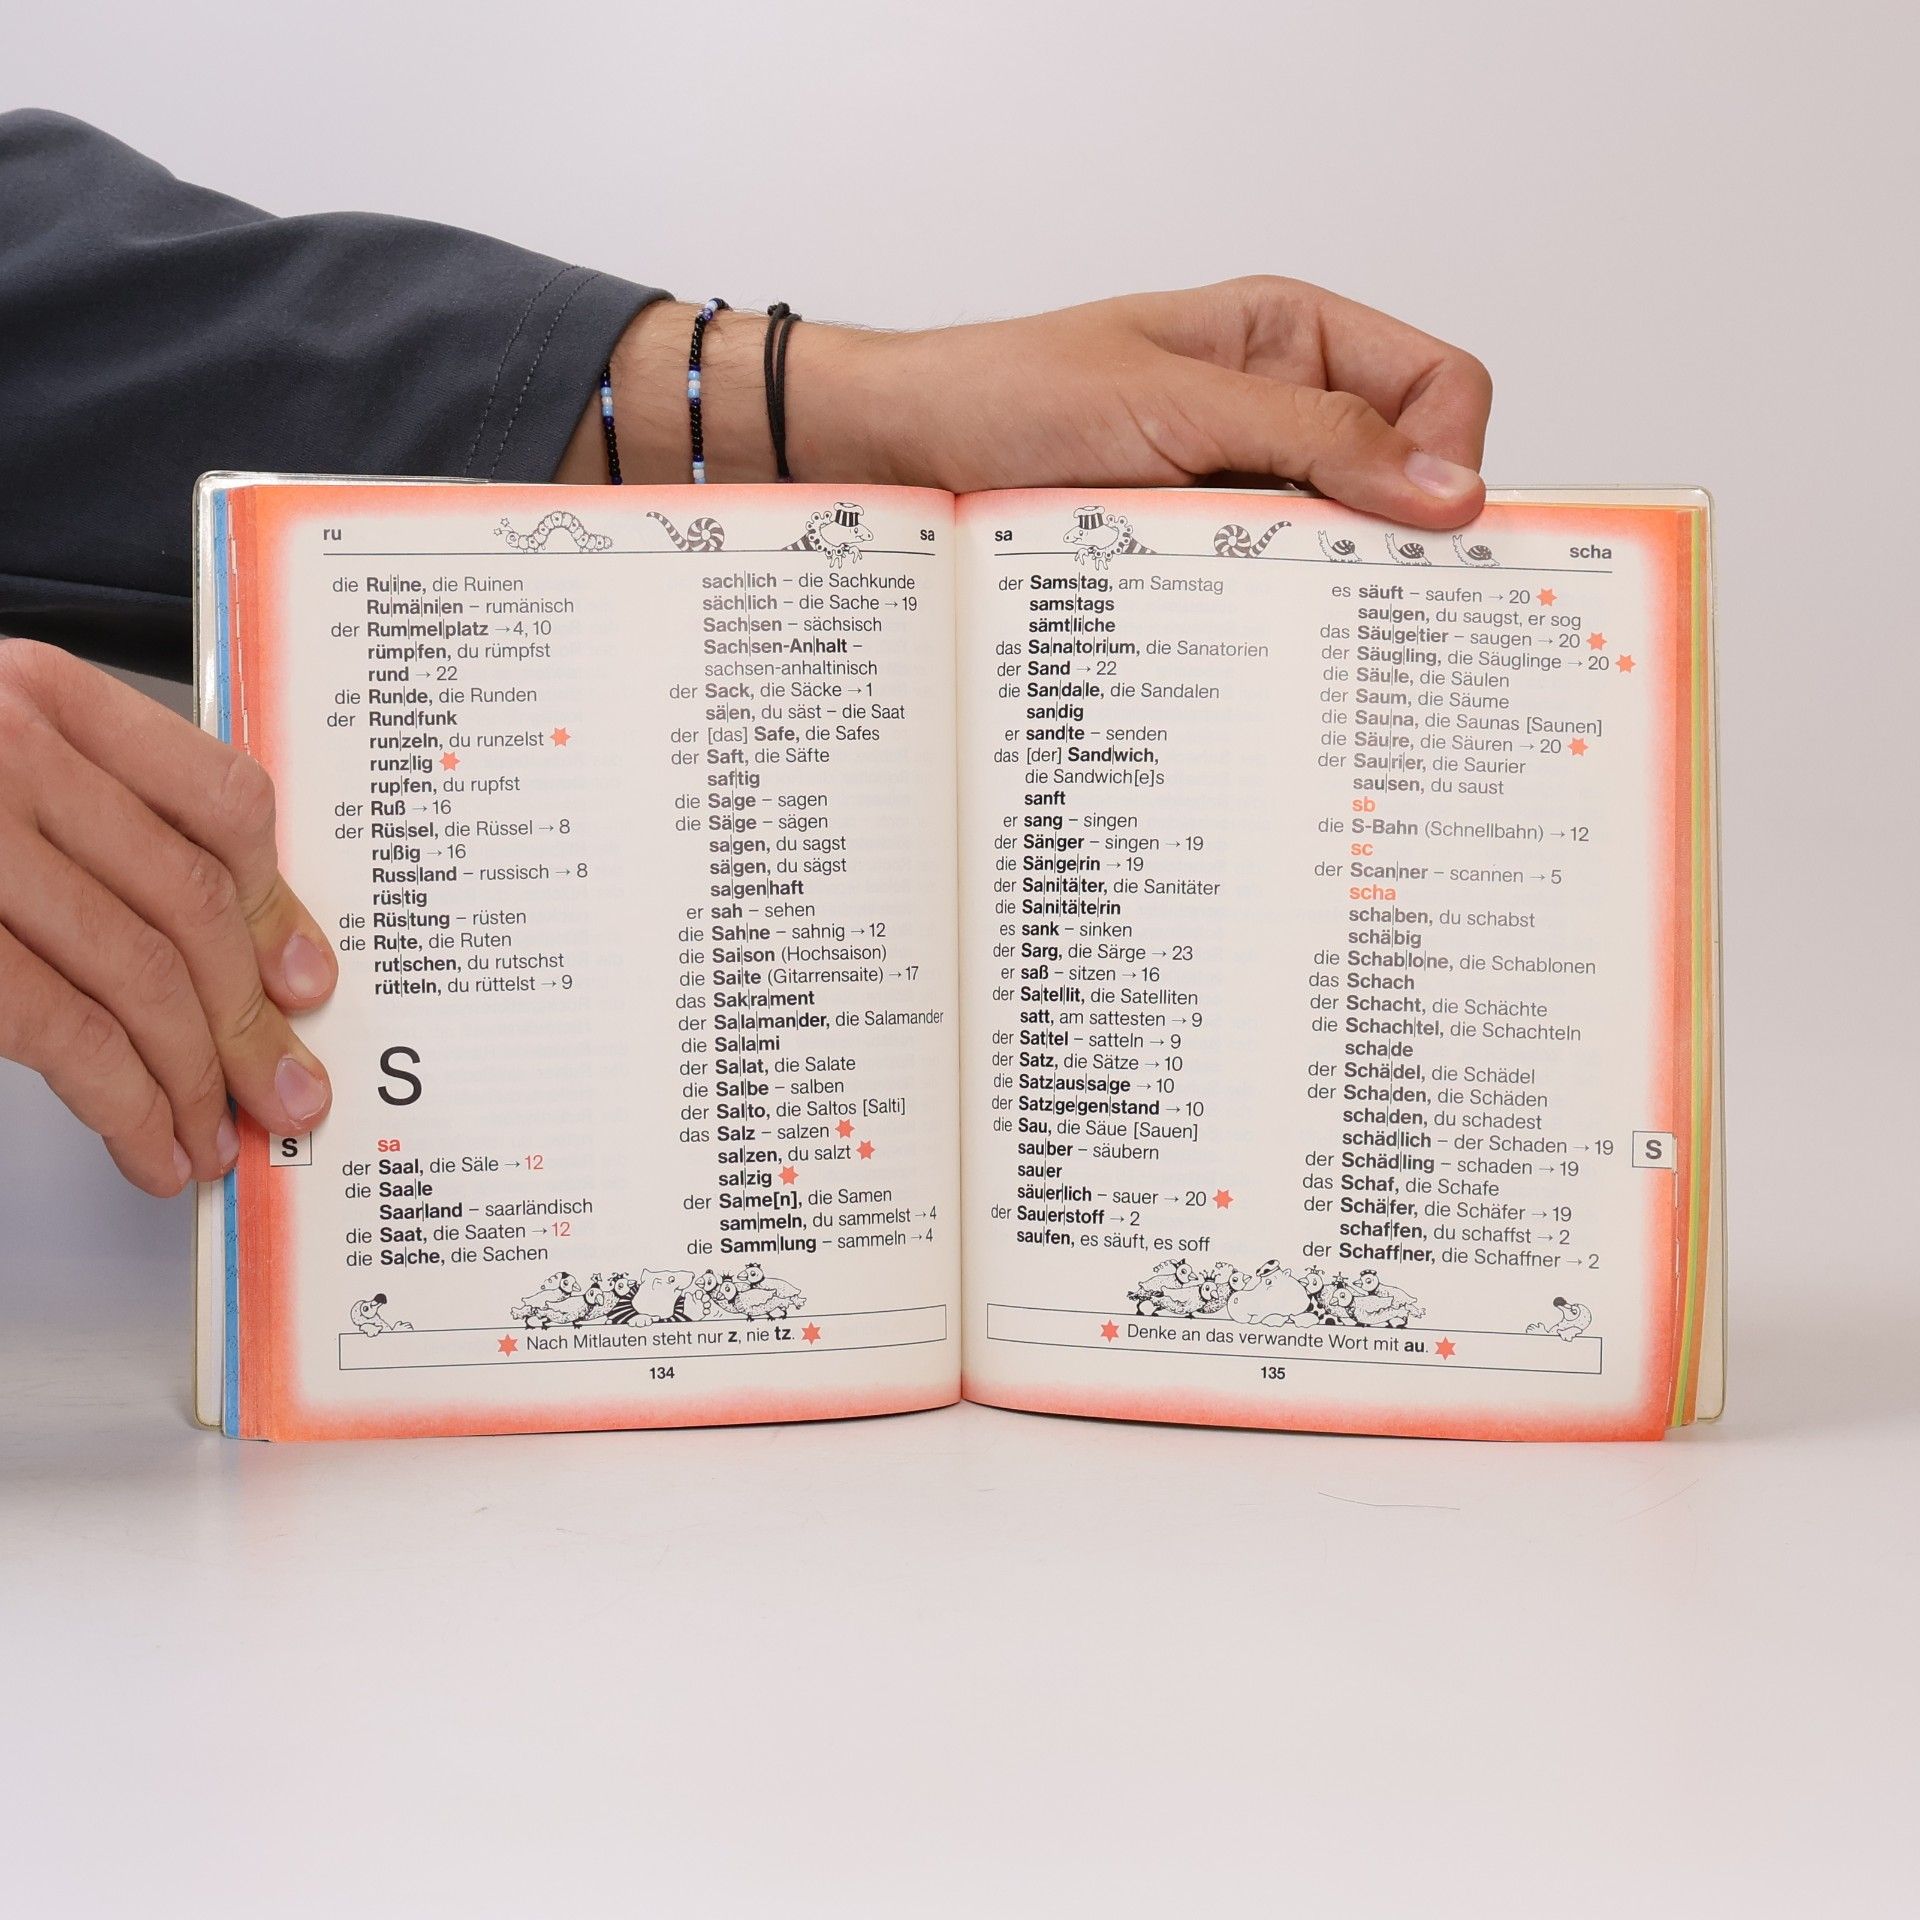 ru
sa
die Ru|i|ne, die Ruinen
Ru|mä|ni|en – rumänisch
der Rum|mel|platz → 4, 10
rümp|fen, du rümpfst
rund → 22
die Run|de, die Runden
der Rund|funk
run|zeln, du runzelst ✶
runz|lig ✶
rup|fen, du rupfst
der Ruß → 16
der Rüs|sel, die Rüssel → 8
ru|ßig → 16
Russ|land – russisch → 8
rüs|tig
die Rüs|tung – rüsten
die Ru|te, die Ruten
rut|schen, du rutschst
rüt|teln, du rüttelst → 9
S
S
sa
der Saal, die Säle → 12
die Saa|le
Saar|land – saarländisch
die Saat, die Saaten → 12
die Sa|che, die Sachen
sach|lich – die Sachkunde
säch|lich – die Sache → 19
Sach|sen – sächsisch
Sach|sen-An|halt –
sachsen-anhaltinisch
der Sack, die Säcke → 1
sä|en, du säst – die Saat
der [das] Safe, die Safes
der Saft, die Säfte
saf|tig
die Sa|ge – sagen
die Sä|ge – sägen
sa|gen, du sagst
sä|gen, du sägst
sa|gen|haft
er sah – sehen
die Sah|ne – sahnig → 12
die Sai|son (Hochsaison)
die Sai|te (Gitarrensaite) → 17
das Sak|ra|ment
der Sa|la|man|der, die Salamander
die Sa|la|mi
der Sa|lat, die Salate
die Sal|be – salben
der Sal|to, die Saltos [Salti]
das Salz – salzen ✶
sal|zen, du salzt ✶
sal|zig ✶
der Sa|me[n], die Samen
sam|meln, du sammelst → 4
die Samm|lung – sammeln → 4
✶ Nach Mitlauten steht nur z, nie tz. ✶
134
sa
scha
der Sams|tag, am Samstag
sams|tags
sämt|li|che
das Sa|na|to|ri|um, die Sanatorien
der Sand → 22
die San|da|le, die Sandalen
san|dig
er sand|te – senden
das [der] Sand|wich,
die Sandwich[e]s
sanft
er sang – singen
der Sän|ger – singen → 19
die Sän|ge|rin → 19
der Sa|ni|tä|ter, die Sanitäter
die Sa|ni|tä|te|rin
es sank – sinken
der Sarg, die Särge → 23
er saß – sitzen → 16
der Sa|tel|lit, die Satelliten
satt, am sattesten → 9
der Sat|tel – satteln → 9
der Satz, die Sätze → 10
die Satz|aus|sa|ge → 10
der Satz|ge|gen|stand → 10
die Sau, die Säue [Sauen]
sau|ber – säubern
sau|er
säu|er|lich – sauer → 20 ✶
der Sau|er|stoff → 2
sau|fen, es säuft, es soff
es säuft – saufen → 20 ✶
sau|gen, du saugst, er sog
das Säu|ge|tier – saugen → 20 ✶
der Säug|ling, die Säuglinge → 20 ✶
die Säu|le, die Säulen
der Saum, die Säume
die Sau|na, die Saunas [Saunen]
die Säu|re, die Säuren → 20 ✶
der Sau|ri|er, die Saurier
sau|sen, du saust
sb
die S-Bahn (Schnellbahn) → 12
sc
der Scan|ner – scannen → 5
scha
scha|ben, du schabst
schä|big
die Schab|lo|ne, die Schablonen
das Schach
der Schacht, die Schächte
die Schach|tel, die Schachteln
scha|de
der Schä|del, die Schädel
der Scha|den, die Schäden
scha|den, du schadest
schäd|lich – der Schaden → 19
der Schäd|ling – schaden → 19
das Schaf, die Schafe
der Schä|fer, die Schäfer → 19
schaf|fen, du schaffst → 2
der Schaff|ner, die Schaffner → 2
S
✶ Denke an das verwandte Wort mit au. ✶
135